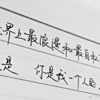 界上最浪漫和最自私
是 你是我一个人的